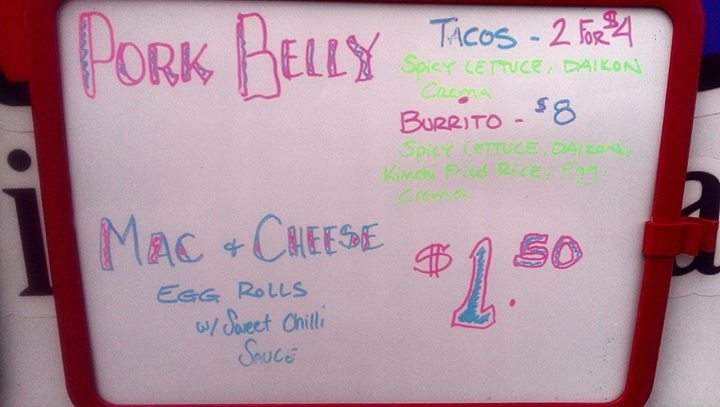 PORK BELLY
TACOS - 2 FOR $4
SPICY LETTUCE, DAIKON
CREMA
BURRITO - $8
SPICY LETTUCE, DAIKON,
Kimchi Fried RICE, Egg,
CREMA
MAC + CHEESE
$1.50
EGG ROLLS
w/ Sweet Chilli
SAUCE
i
a